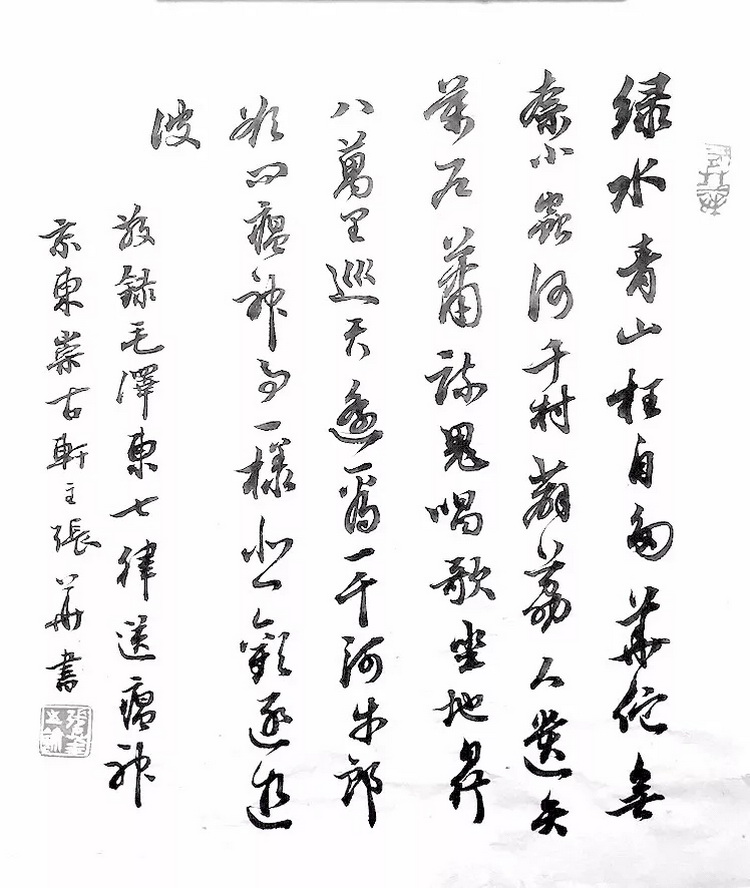 綠水青山枉自多華佗無
奈小蟲何千村薜荔人遺矢
萬戶蕭疏鬼唱歌坐地日行
八萬里巡天遙看一千河牛郎
欲問瘟神事一樣悲歡逐逝
波
敬錄毛澤東七律送瘟神
京東崇古軒主張華書
張華之印